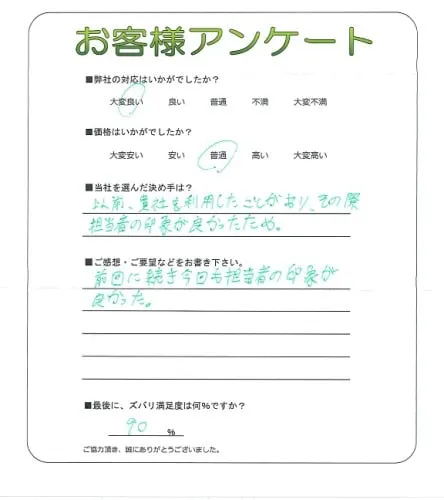 お客様アンケート
■弊社の対応はいかがでしたか?
大変良い 良い 普通 不満 大変不満
■価格はいかがでしたか?
大変安い 安い 普通 高い 大変高い
■当社を選んだ決め手は?
以前、貴社を利用したことがあり、その際
担当者の印象が良かったため。
■ご感想・ご要望などをお書き下さい。
前回に続き今回も担当者の印象が
良かった。
■最後に、ズバリ満足度は何%ですか?
90 %
ご協力頂き、誠にありがとうございました。